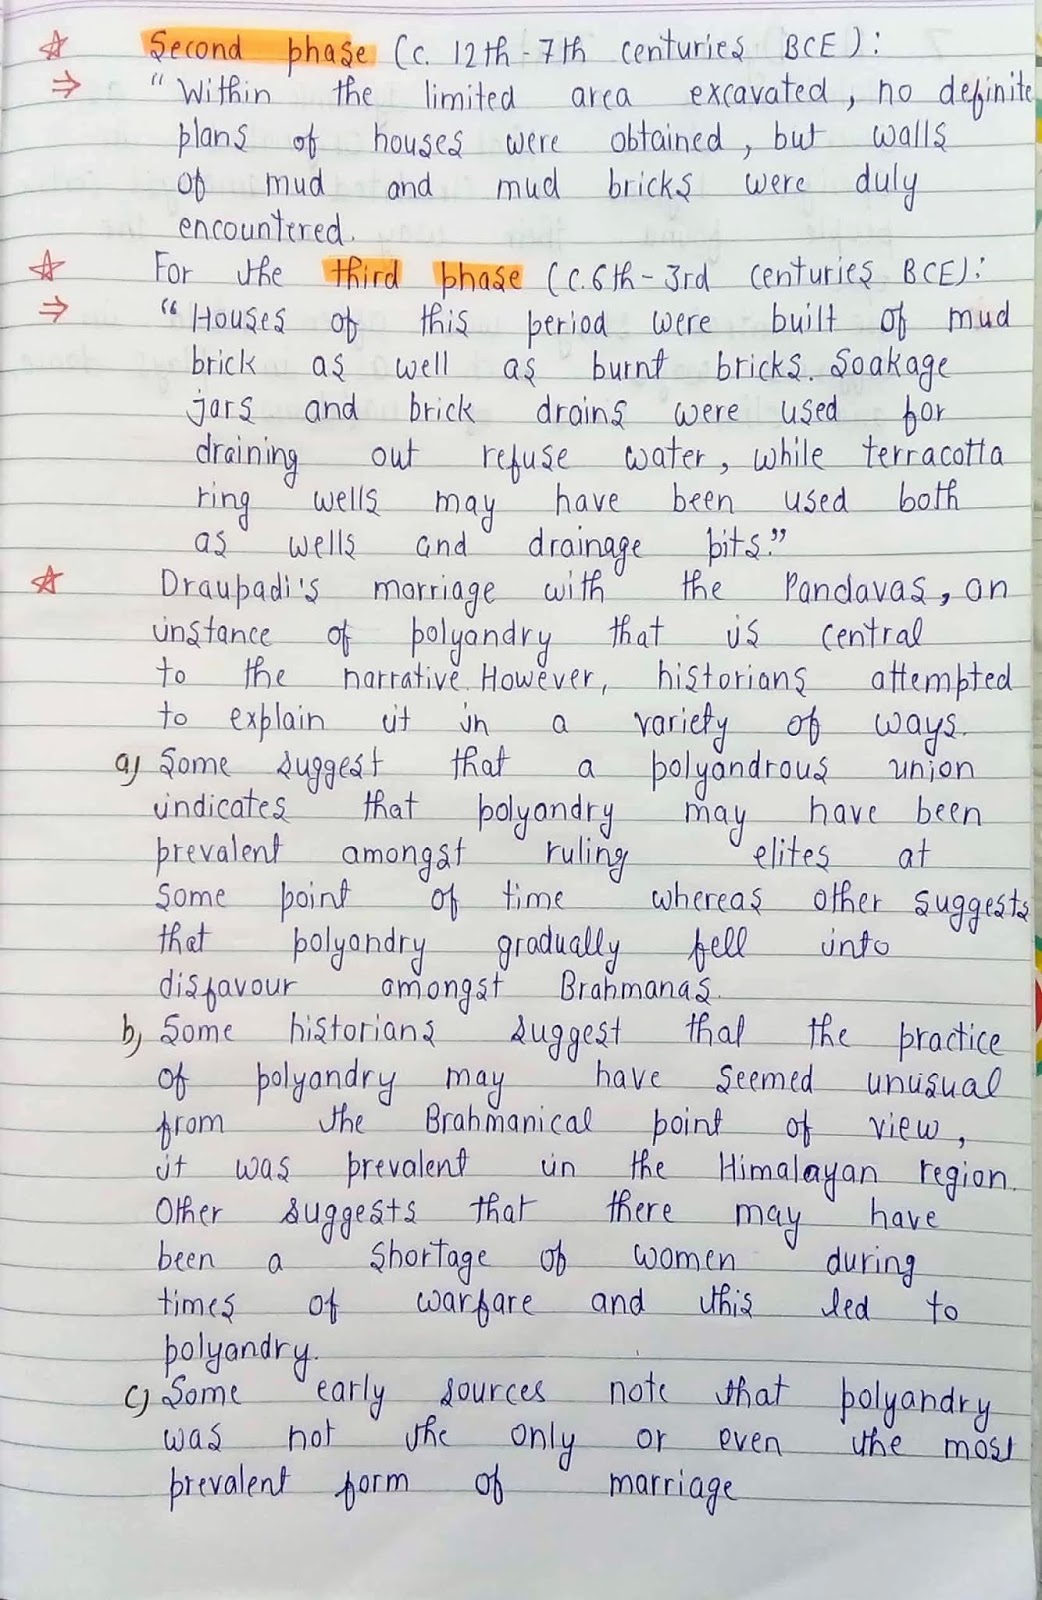 ☆ Second phase (c. 12th-7th centuries BCE):
⇒ "Within the limited area excavated, no definite
plans of houses were obtained, but walls
of mud and mud bricks were duly
encountered.
☆ For the third phase (c. 6th-3rd centuries BCE):
⇒ "Houses of this period were built of mud
brick as well as burnt bricks. Soakage
jars and brick drains were used for
draining out refuse water, while terracotta
ring wells may have been used both
as wells and drainage pits."
☆ Draupadi's marriage with the Pandavas, an
instance of polyandry that is central
to the narrative. However, historians attempted
to explain it in a variety of ways.
a) Some suggest that a polyandrous union
indicates that polyandry may have been
prevalent amongst ruling elites at
some point of time whereas other suggests
that polyandry gradually fell into
disfavour amongst Brahmanas.
b) Some historians suggest that the practice
of polyandry may have seemed unusual
from the Brahmanical point of view,
it was prevalent in the Himalayan region.
Other suggests that there may have
been a shortage of women during
times of warfare and this led to
polyandry.
c) Some early sources note that polyandry
was not the only or even the most
prevalent form of marriage